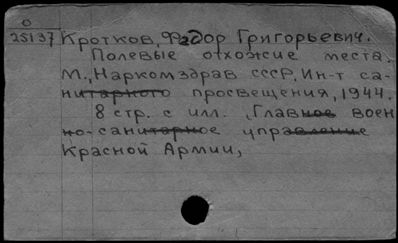 О
25137
Кротков, Федор Григорьевич.
Полевые отхожие места.
М., Наркомздрав СССР, Ин-т са-
нитарного просвещения, 1944.
8 стр. с илл. Главное воен
но-санитарное управление
Красной Армии,